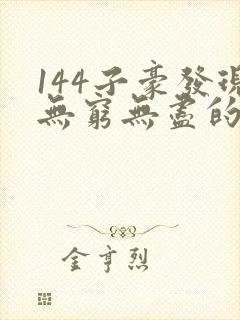 144子豪發現
無窮無盡的
金亨烈